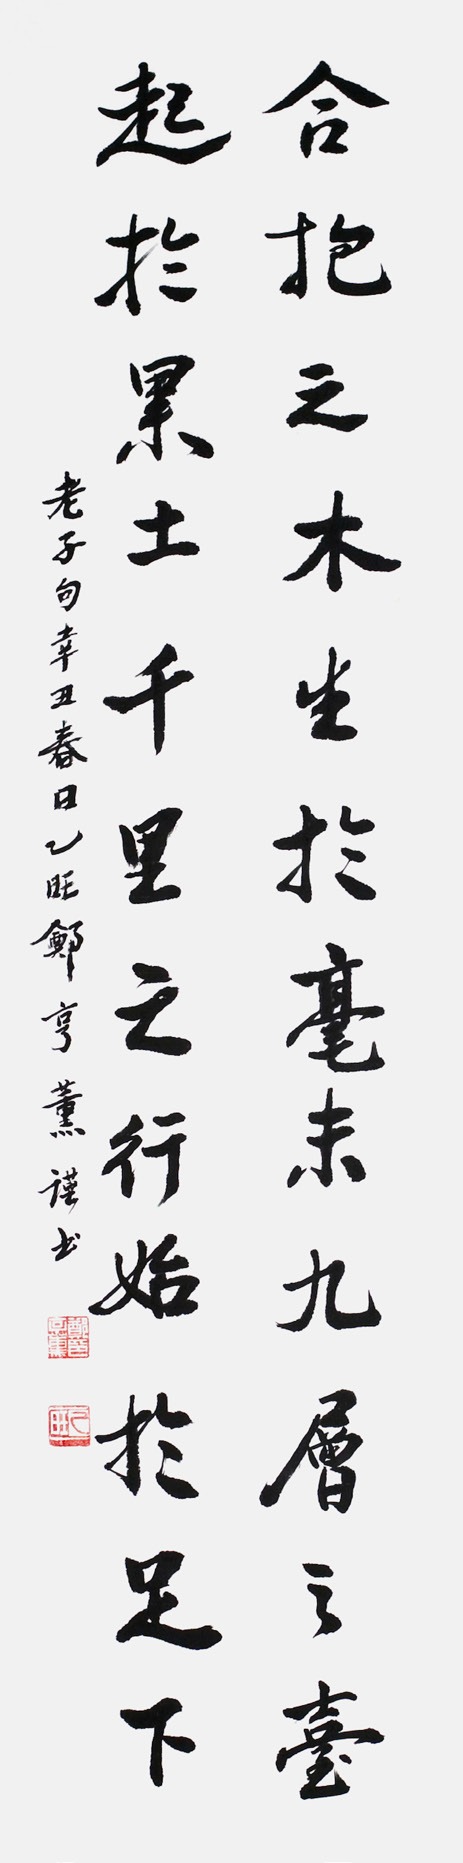 合抱之木生於毫末九層之臺
起於累土千里之行始於足下
老子句辛丑春日乙旺鄭亨薰謹書
乙旺